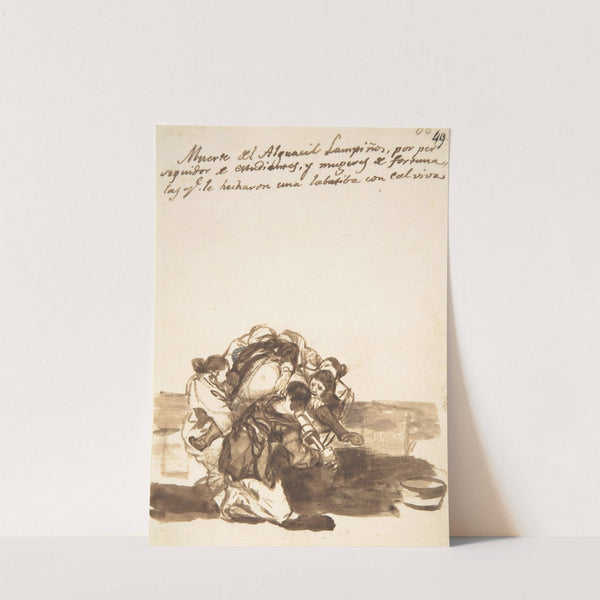 49
Muerte del Alguacil Lampiños, por per
seguidor de estudiantes, y mugeres de fortuna,
las qe. le hecharon una labatiba con cal viva